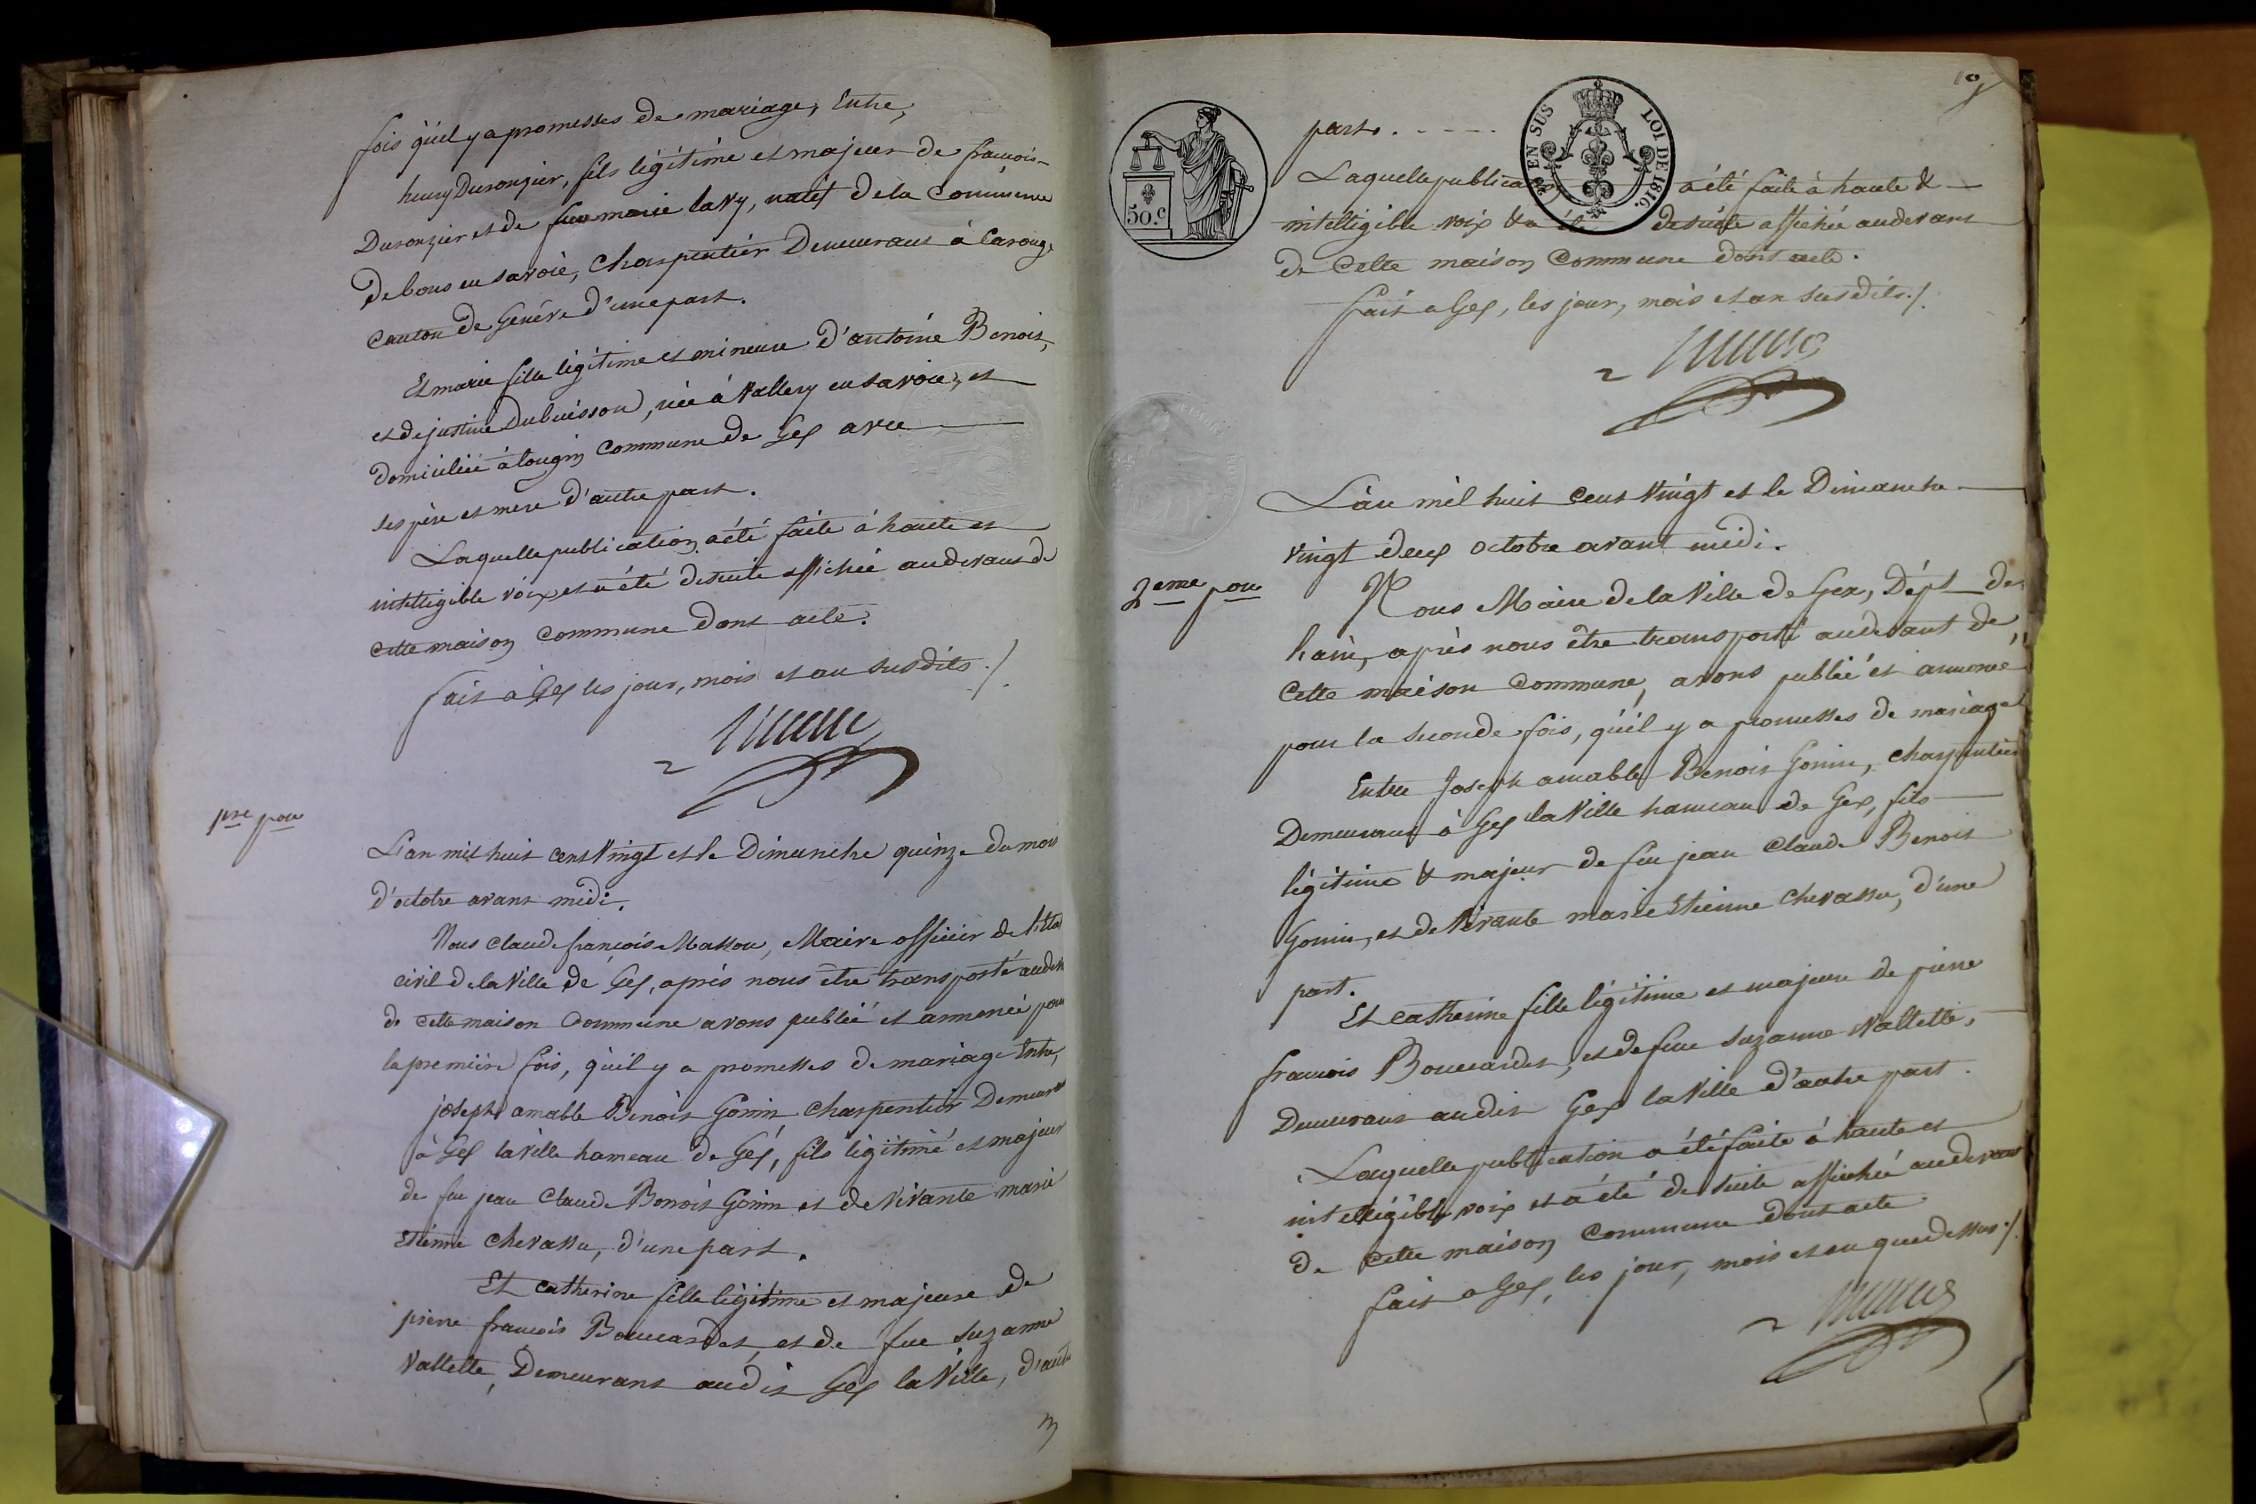 fois qu'il y a promesses de mariage, Entre,
henry Duronzier, fils légitime et majeur de francois
Duronzier et de feue marie lavy, natif de la Commune
de bons en savoie, Charpentier Demeurant à Carouge
Canton de Genève d'une part.
Et marie fille légitime et mineure d'antoine Benoit,
et de justine Dubuisson, née à Vallery en savoie, et
domiciliée à tougin Commune de Gex avec
ses père et mère d'autre part.
Laquelle publication a été faite à haute et
intelligible voix et a été de suite affichée audevant de
cette maison Commune dont acte.
fait à Gex les jour, mois et an susdits ./.
pre pon
L'an mil huit cent Vingt et le Dimanche quinze du mois
d'octobre avant midi.
Nous claude francois Massou, Maire officier de l'état
civil de la Ville de Gex, après nous être transporté audevt
de cette maison Commune avons publié et annoncé pour
la premiére fois, qu'il y a promesses de mariage Entre,
joseph amable Benoit Gonin Charpentier Demeurt
à Gex la ville hameau de Gex, fils légitime et majeur
de feu jean Claude Benoit Gonin et de Vivante marie
Etienne Chevassu, d'une part.
Et catherine fille légitime et majeure de
pierre francois Bouccardet, et de feue Suzanne
Vallette, Demeurant audit Gex la Ville, d'autre
19
part. - - - -
25c EN SUS LOI DE 1816.
50.c
Laquelle publica a été faite à haute &
intelligible voix & a été de suite affichée audevant
de cette maison Commune dont acte.
fait à Gex, les jour, mois et an susdits ./.
L'an mil huit cent Vingt et le Dimanche
vingt deux octobre avant midi.
2eme pon
Nous Maire de la Ville de Gex, Dépt de
l'ain, après nous être transporté audevant de
Cette maison Commune, avons publié et annoncé
pour la seconde fois, qu'il y a promesses de mariage
Entre Joseph amable Benoit Gonin, Charpentier
Demeurant à Gex la Ville hameau de Gex, fils
légitime & majeur de feu jean Claude Benoit
Gonin, et de Vivante marie Etienne Chevassu, d'une
part.
Et catherine fille légitime et majeure de pierre
francois Bouccardet, et de feue Suzanne Vallette,
Demeurant audit Gex la Ville d'autre part.
Laquelle publication a été faite à haute et
intelligible voix et a été de suite affichée audevant
de cette maison Commune dont acte
fait à Gex, les jour, mois et an que dessus ./.